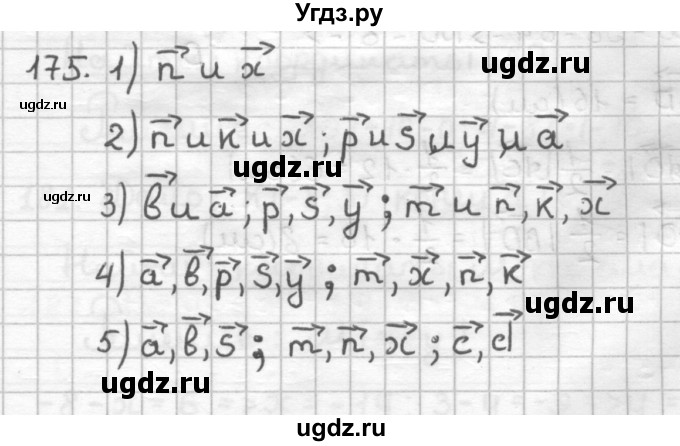 Угдз.ру
175. 1) n⃗ и x⃗
ugdz.ru
ugdz.ru
2) n⃗ и к⃗ и x⃗ ; p⃗ и s⃗ и y⃗ и a⃗
ugdz.ru
ugdz.ru
3) в⃗ и a⃗ ; p⃗, s⃗, y⃗ ; m⃗ и n⃗, к⃗, x⃗
4) a⃗, в⃗, p⃗, s⃗, y⃗ ; m⃗, x⃗, n⃗, к⃗
ugdz.ru
ugdz.ru
5) a⃗, в⃗, s⃗ ; m⃗, n⃗, x⃗ ; c⃗, d⃗
ugdz.ru
ugdz.ru